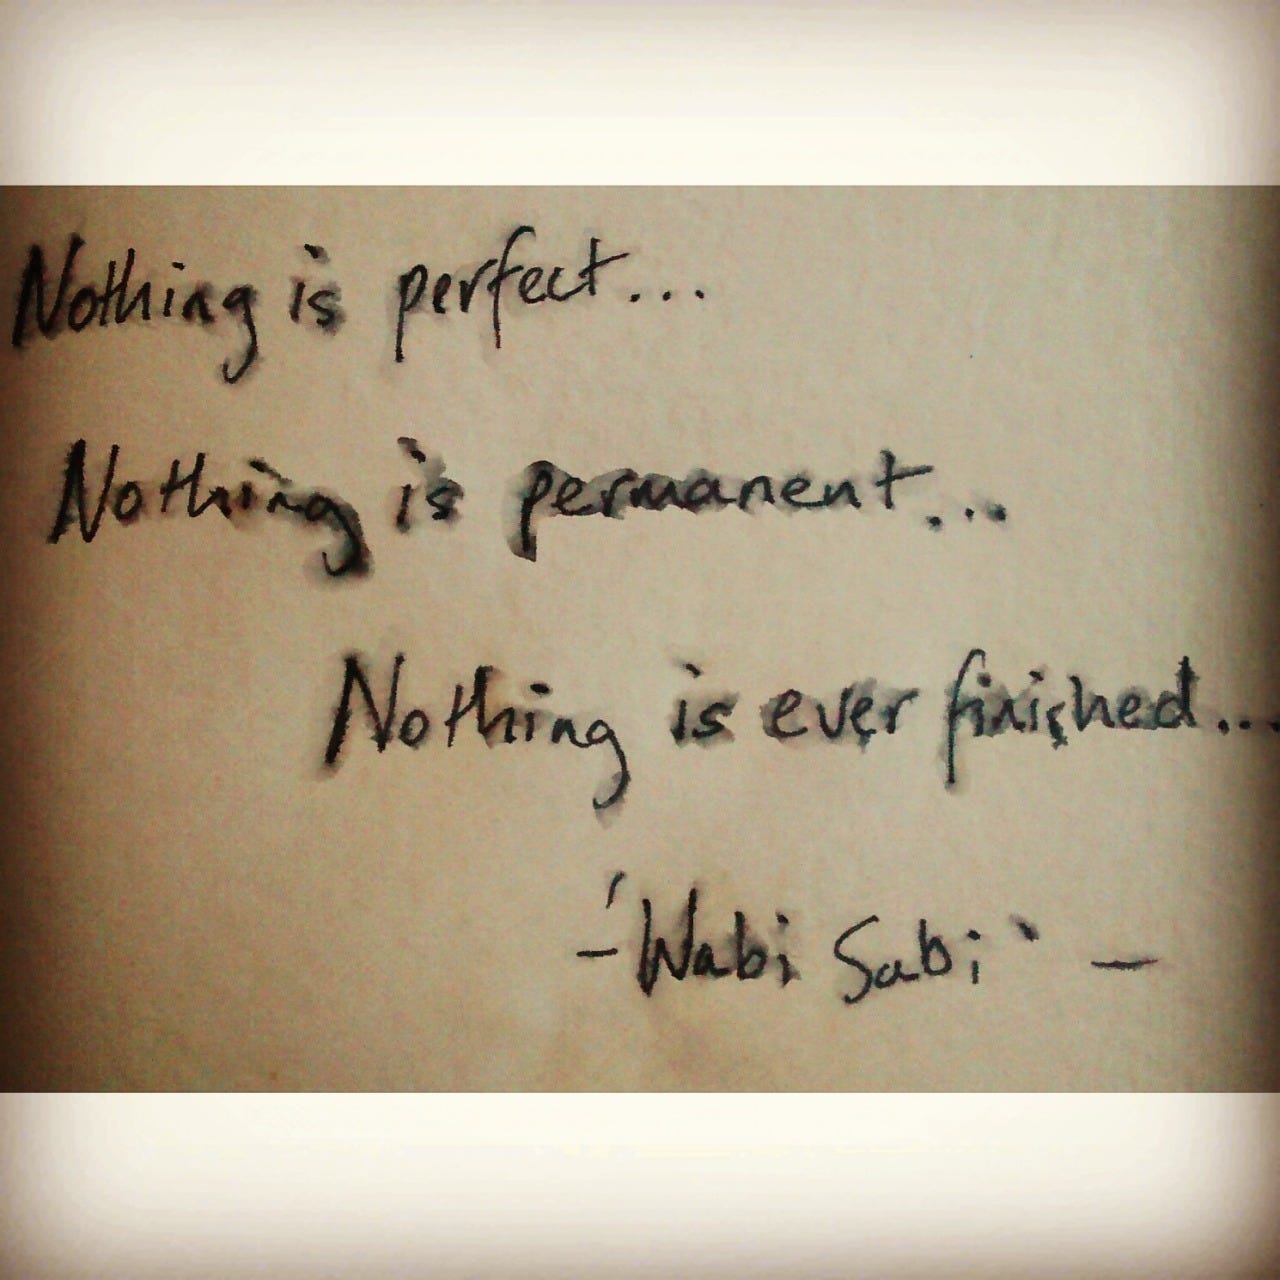 Nothing is perfect...
Nothing is permanent...
Nothing is ever finished...
-'Wabi Sabi' -